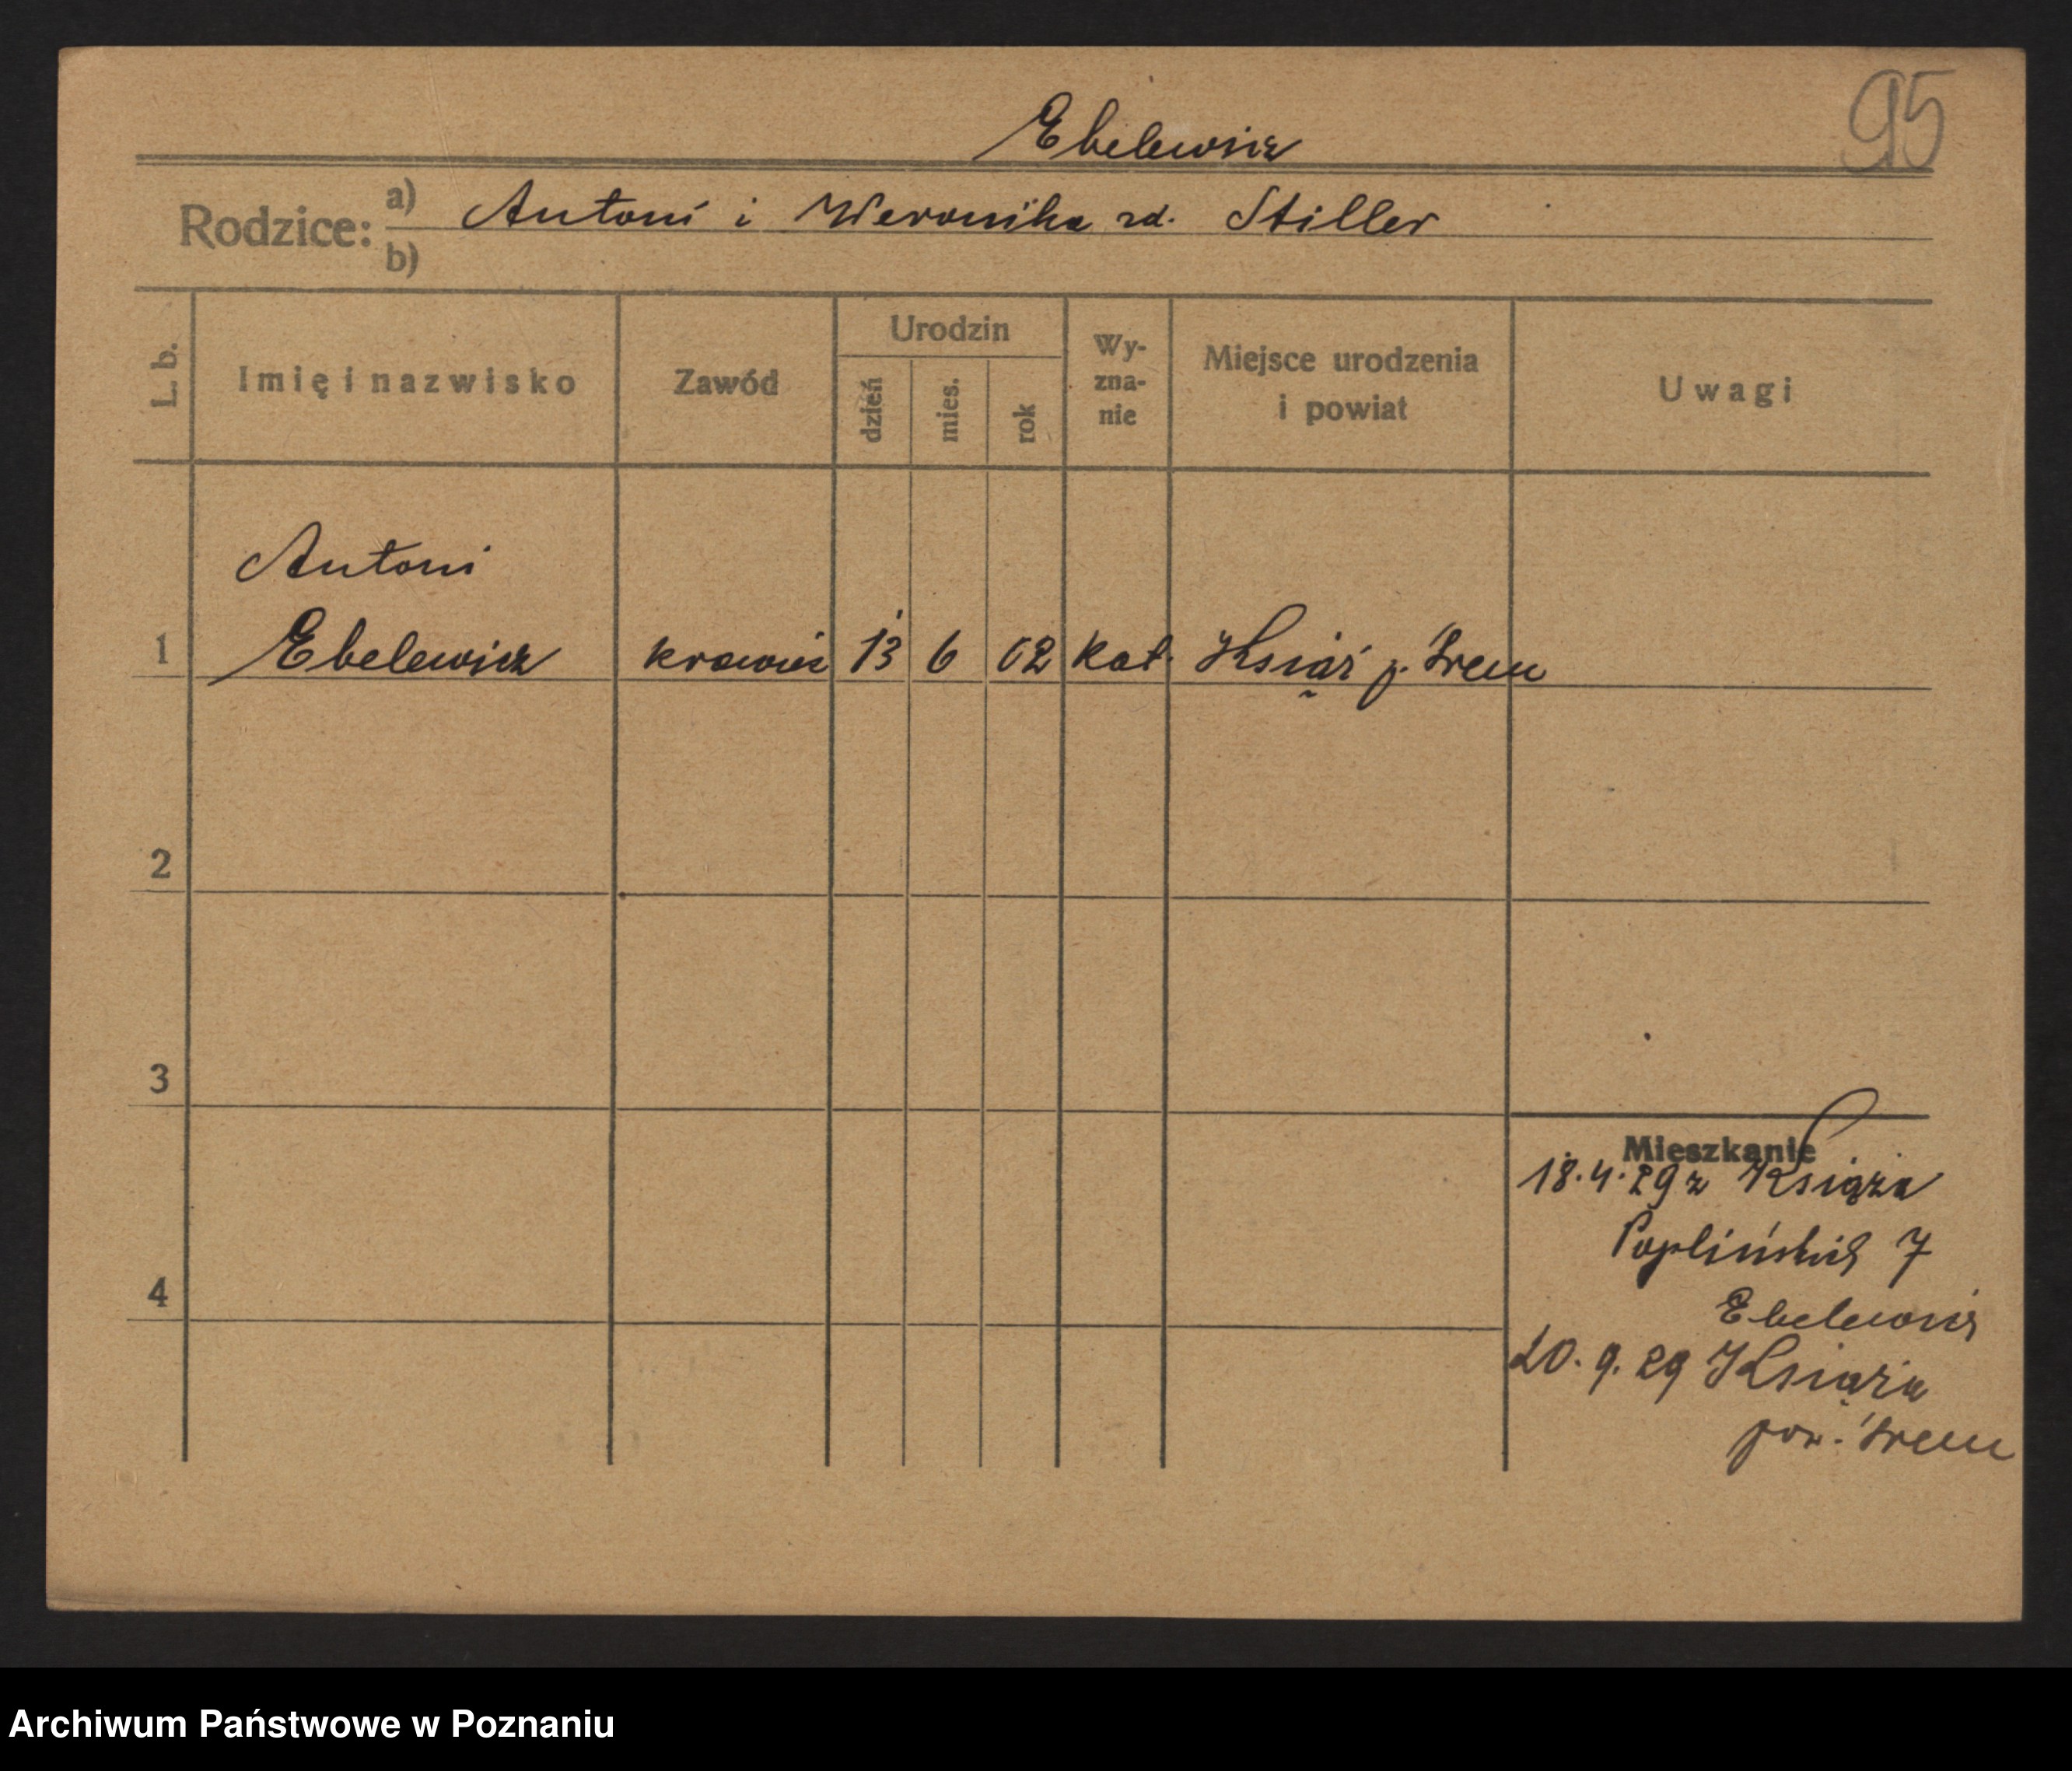 95
Ebelewicz
Rodzice: a) Antoni i Weronika zd. Stiller
b)
L. b. Imię i nazwisko Zawód Urodzin dzień mies. rok Wy-zna-nie Miejsce urodzenia i powiat Uwagi
Antoni
1 Ebelewicz krawiec 13 6 02 kat. Książ p. Śrem
2
3
Mieszkanie
18.4.29 z Książa
Poplińskich 7
4
Ebelewicz
20.9.29 Książa
pow. Śrem
Archiwum Państwowe w Poznaniu